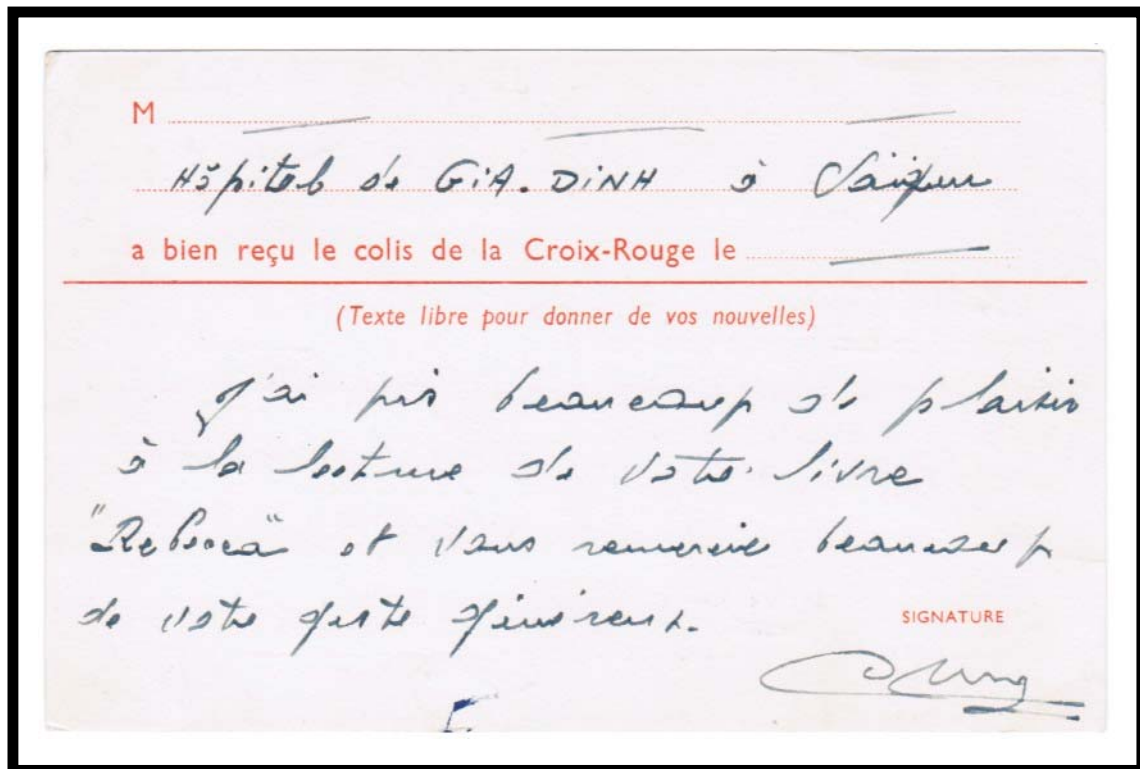 M
Hôpital de GIA.DINH à Saïgon
a bien reçu le colis de la Croix-Rouge le
(Texte libre pour donner de vos nouvelles)
J'ai pris beaucoup de plaisir
à la lecture de votre livre
"Rebecca" et vous remercie beaucoup
de votre geste généreux.
SIGNATURE